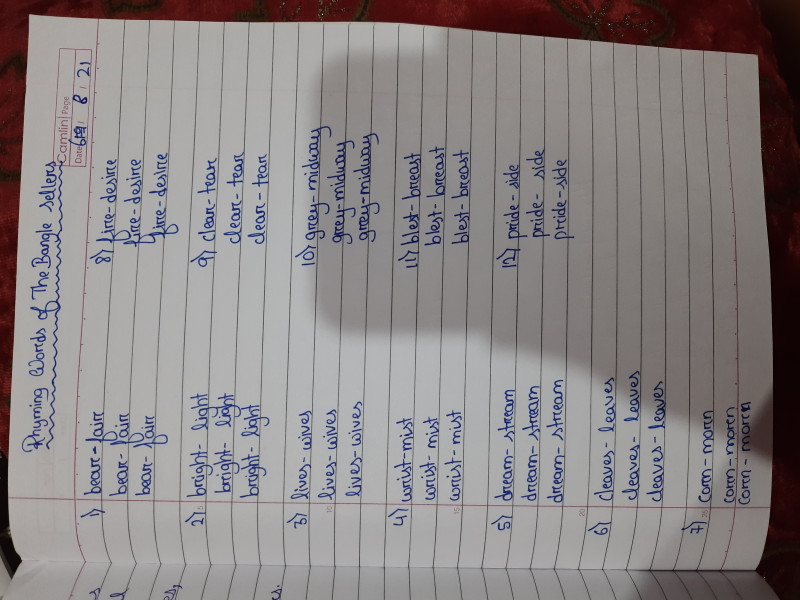 Camlin Page
Date 8 / 21
Rhyming Words of The Bangle Sellers
1) bear - fair
bear - fair
bear - fair
2) bright - light
bright - light
bright - light
3) lives - wives
lives - wives
lives - wives
4) wrist - mist
wrist - mist
wrist - mist
5) dream - stream
dream - stream
dream - stream
6) cleaves - leaves
cleaves - leaves
cleaves - leaves
7) corn - morn
corn - morn
corn - morn
8) fire - desire
fire - desire
fire - desire
9) clear - tear
clear - tear
clear - tear
10) grey - midway
grey - midway
grey - midway
11) blest - breast
blest - breast
blest - breast
12) pride - side
pride - side
pride - side